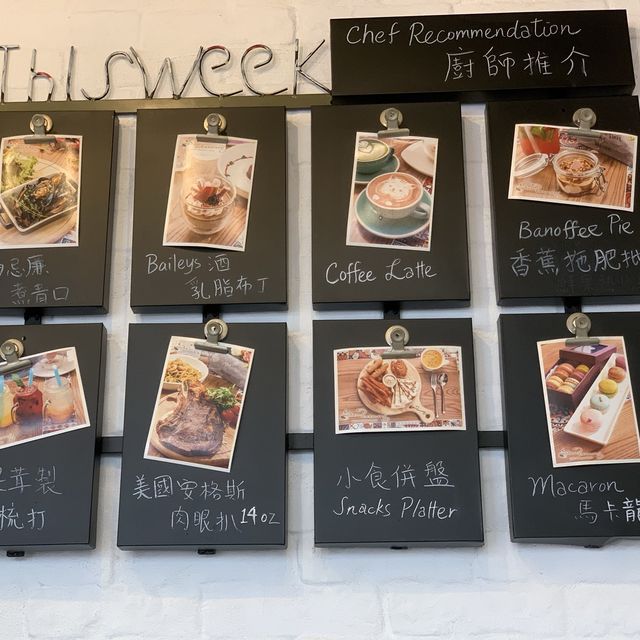 This week
Chef Recommendation
廚師推介
忌廉
煮青口
Baileys 酒
乳脂布丁
Coffee Latte
Banoffee Pie
香蕉拖肥批
製
梳打
美國安格斯
肉眼扒 14oz
小食併盤
Snacks Platter
Macaron
馬卡龍